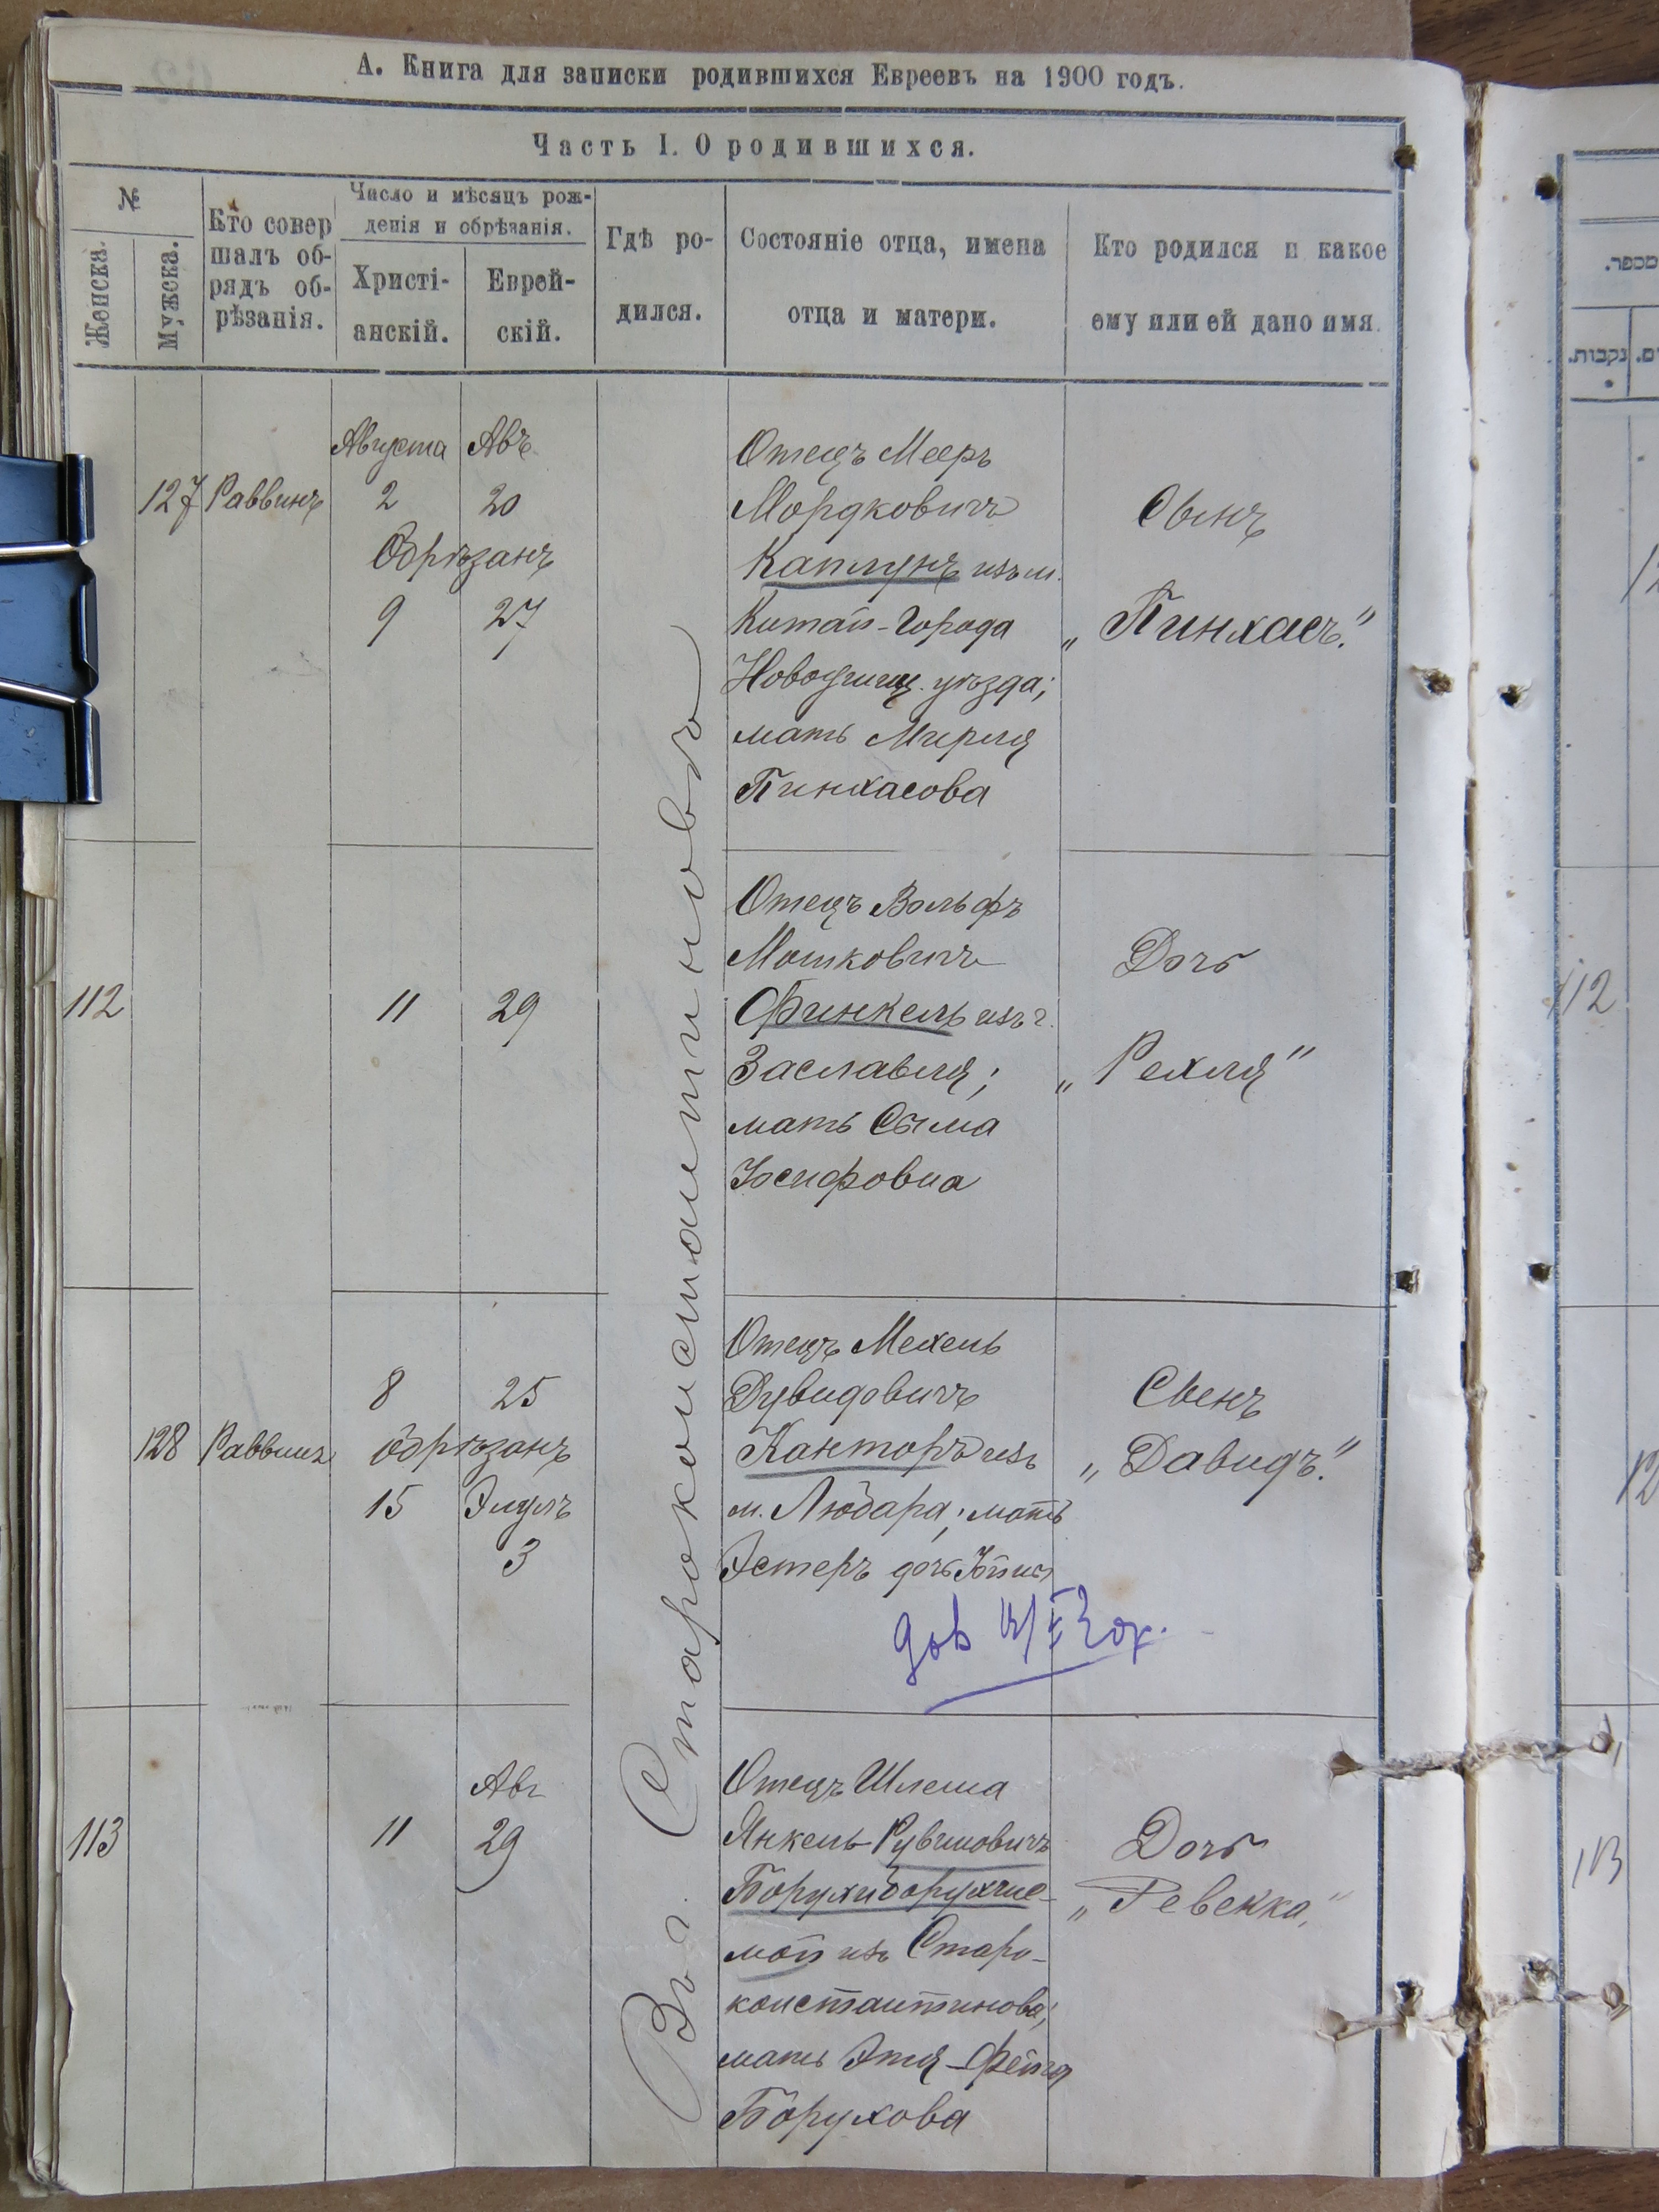 А. Книга для записки родившихся Евреевъ на 1900 годъ.
Часть I. О родившихся.
№
Женска.
Мужска.
Кто совер
шалъ об-
рядъ об-
рѣзанія.
Число и мѣсяцъ рож-
денія и обрѣзанія.
Христі-
анскій.
Еврей-
скій.
Гдѣ ро-
дился.
Состояніе отца, имена
отца и матери.
Кто родился и какое
ему или ей дано имя.
Въ г. Староконстантиновѣ
127
Раввинъ
Августа
2
Авъ
20
Обрѣзанъ
9
27
Отецъ Мееръ
Мордковичъ
изъ м.
Китай-Города
Новоушиц. уѣзда;
мать Мирля
Пинхасова
Сынъ
„Пинхасъ."
112
11
29
Отецъ Вольфъ
Мошковичъ
Финкель изъ г.
Заславля;
мать Сыма
Іосифовна
Дочь
„Рехля"
128
Раввинъ
8
25
обрѣзанъ
15
Элулъ
3
Отецъ Мехель
Дувидовичъ
Канторъ изъ
м. Любара; мать
Эстеръ дочь
Сынъ
„Давидъ."
113
11
Авг
29
Отецъ Шлема
Янкель Рувиновичъ
мой изъ Старо-
константинова;
мать Этя-Фейга
Борухова
Дочь
„Ревекка,"
מספר.
נקבות.
112
113